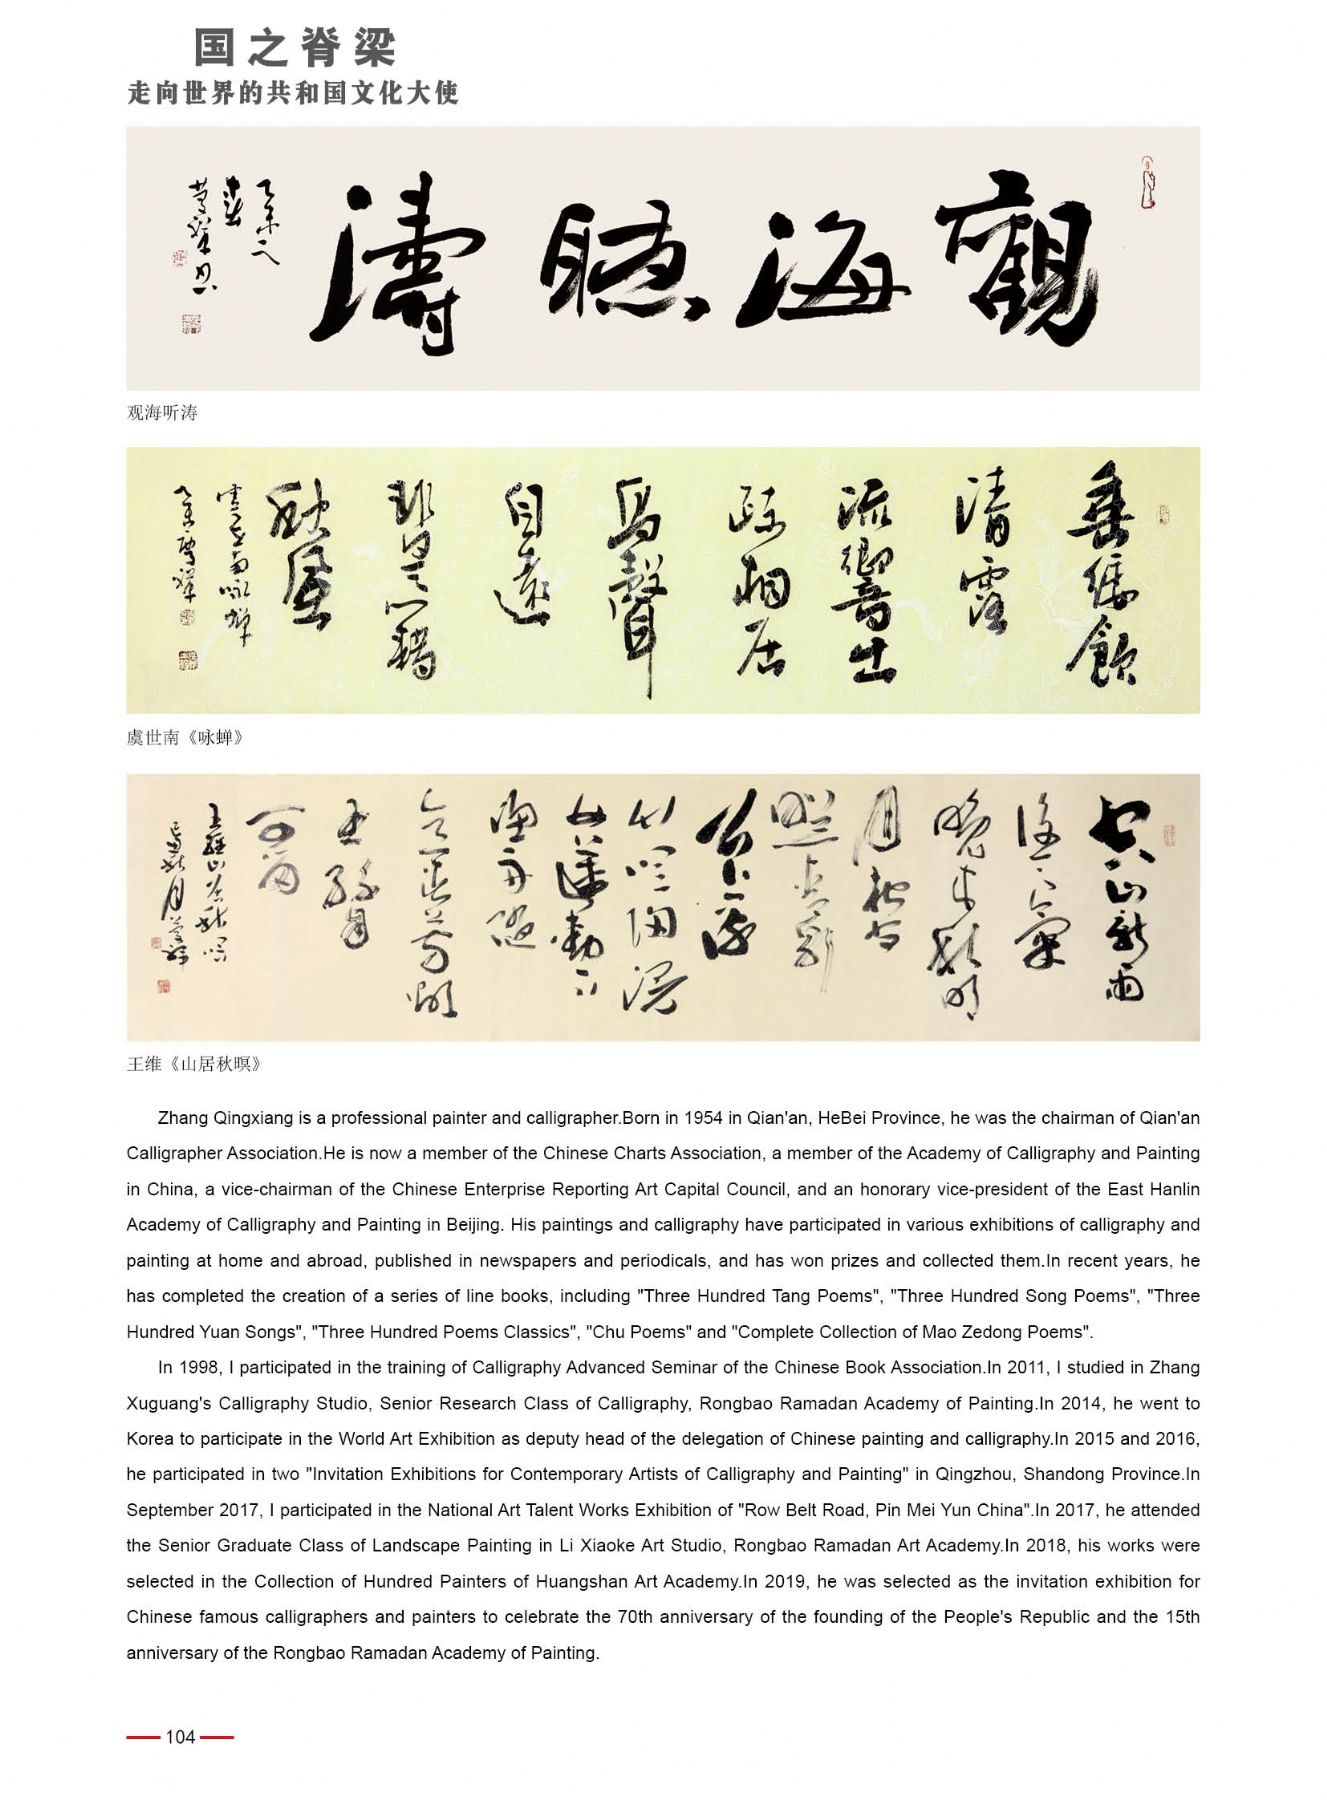 国之脊梁
走向世界的共和国文化大使
觀海聴濤
乙未之
春
慶祥书
观海听涛
垂緌飲
清露
流響出
疏桐居
高聲
自遠
非是藉
秋風
虞世南咏蝉
乙未慶祥
虞世南《咏蝉》
空山新雨
後天氣
晚来秋明
月松间
照清泉
石上流
竹喧归浣
女莲動下
渔舟随
意春芳歇
王孫自
可留
王維山居秋暝
王维《山居秋暝》
Zhang Qingxiang is a professional painter and calligrapher.Born in 1954 in Qian'an, HeBei Province, he was the chairman of Qian'an
Calligrapher Association.He is now a member of the Chinese Charts Association, a member of the Academy of Calligraphy and Painting
in China, a vice-chairman of the Chinese Enterprise Reporting Art Capital Council, and an honorary vice-president of the East Hanlin
Academy of Calligraphy and Painting in Beijing. His paintings and calligraphy have participated in various exhibitions of calligraphy and
painting at home and abroad, published in newspapers and periodicals, and has won prizes and collected them.In recent years, he
has completed the creation of a series of line books, including "Three Hundred Tang Poems", "Three Hundred Song Poems", "Three
Hundred Yuan Songs", "Three Hundred Poems Classics", "Chu Poems" and "Complete Collection of Mao Zedong Poems".
In 1998, I participated in the training of Calligraphy Advanced Seminar of the Chinese Book Association.In 2011, I studied in Zhang
Xuguang's Calligraphy Studio, Senior Research Class of Calligraphy, Rongbao Ramadan Academy of Painting.In 2014, he went to
Korea to participate in the World Art Exhibition as deputy head of the delegation of Chinese painting and calligraphy.In 2015 and 2016,
he participated in two "Invitation Exhibitions for Contemporary Artists of Calligraphy and Painting" in Qingzhou, Shandong Province.In
September 2017, I participated in the National Art Talent Works Exhibition of "Row Belt Road, Pin Mei Yun China".In 2017, he attended
the Senior Graduate Class of Landscape Painting in Li Xiaoke Art Studio, Rongbao Ramadan Art Academy.In 2018, his works were
selected in the Collection of Hundred Painters of Huangshan Art Academy.In 2019, he was selected as the invitation exhibition for
Chinese famous calligraphers and painters to celebrate the 70th anniversary of the founding of the People's Republic and the 15th
anniversary of the Rongbao Ramadan Academy of Painting.
104